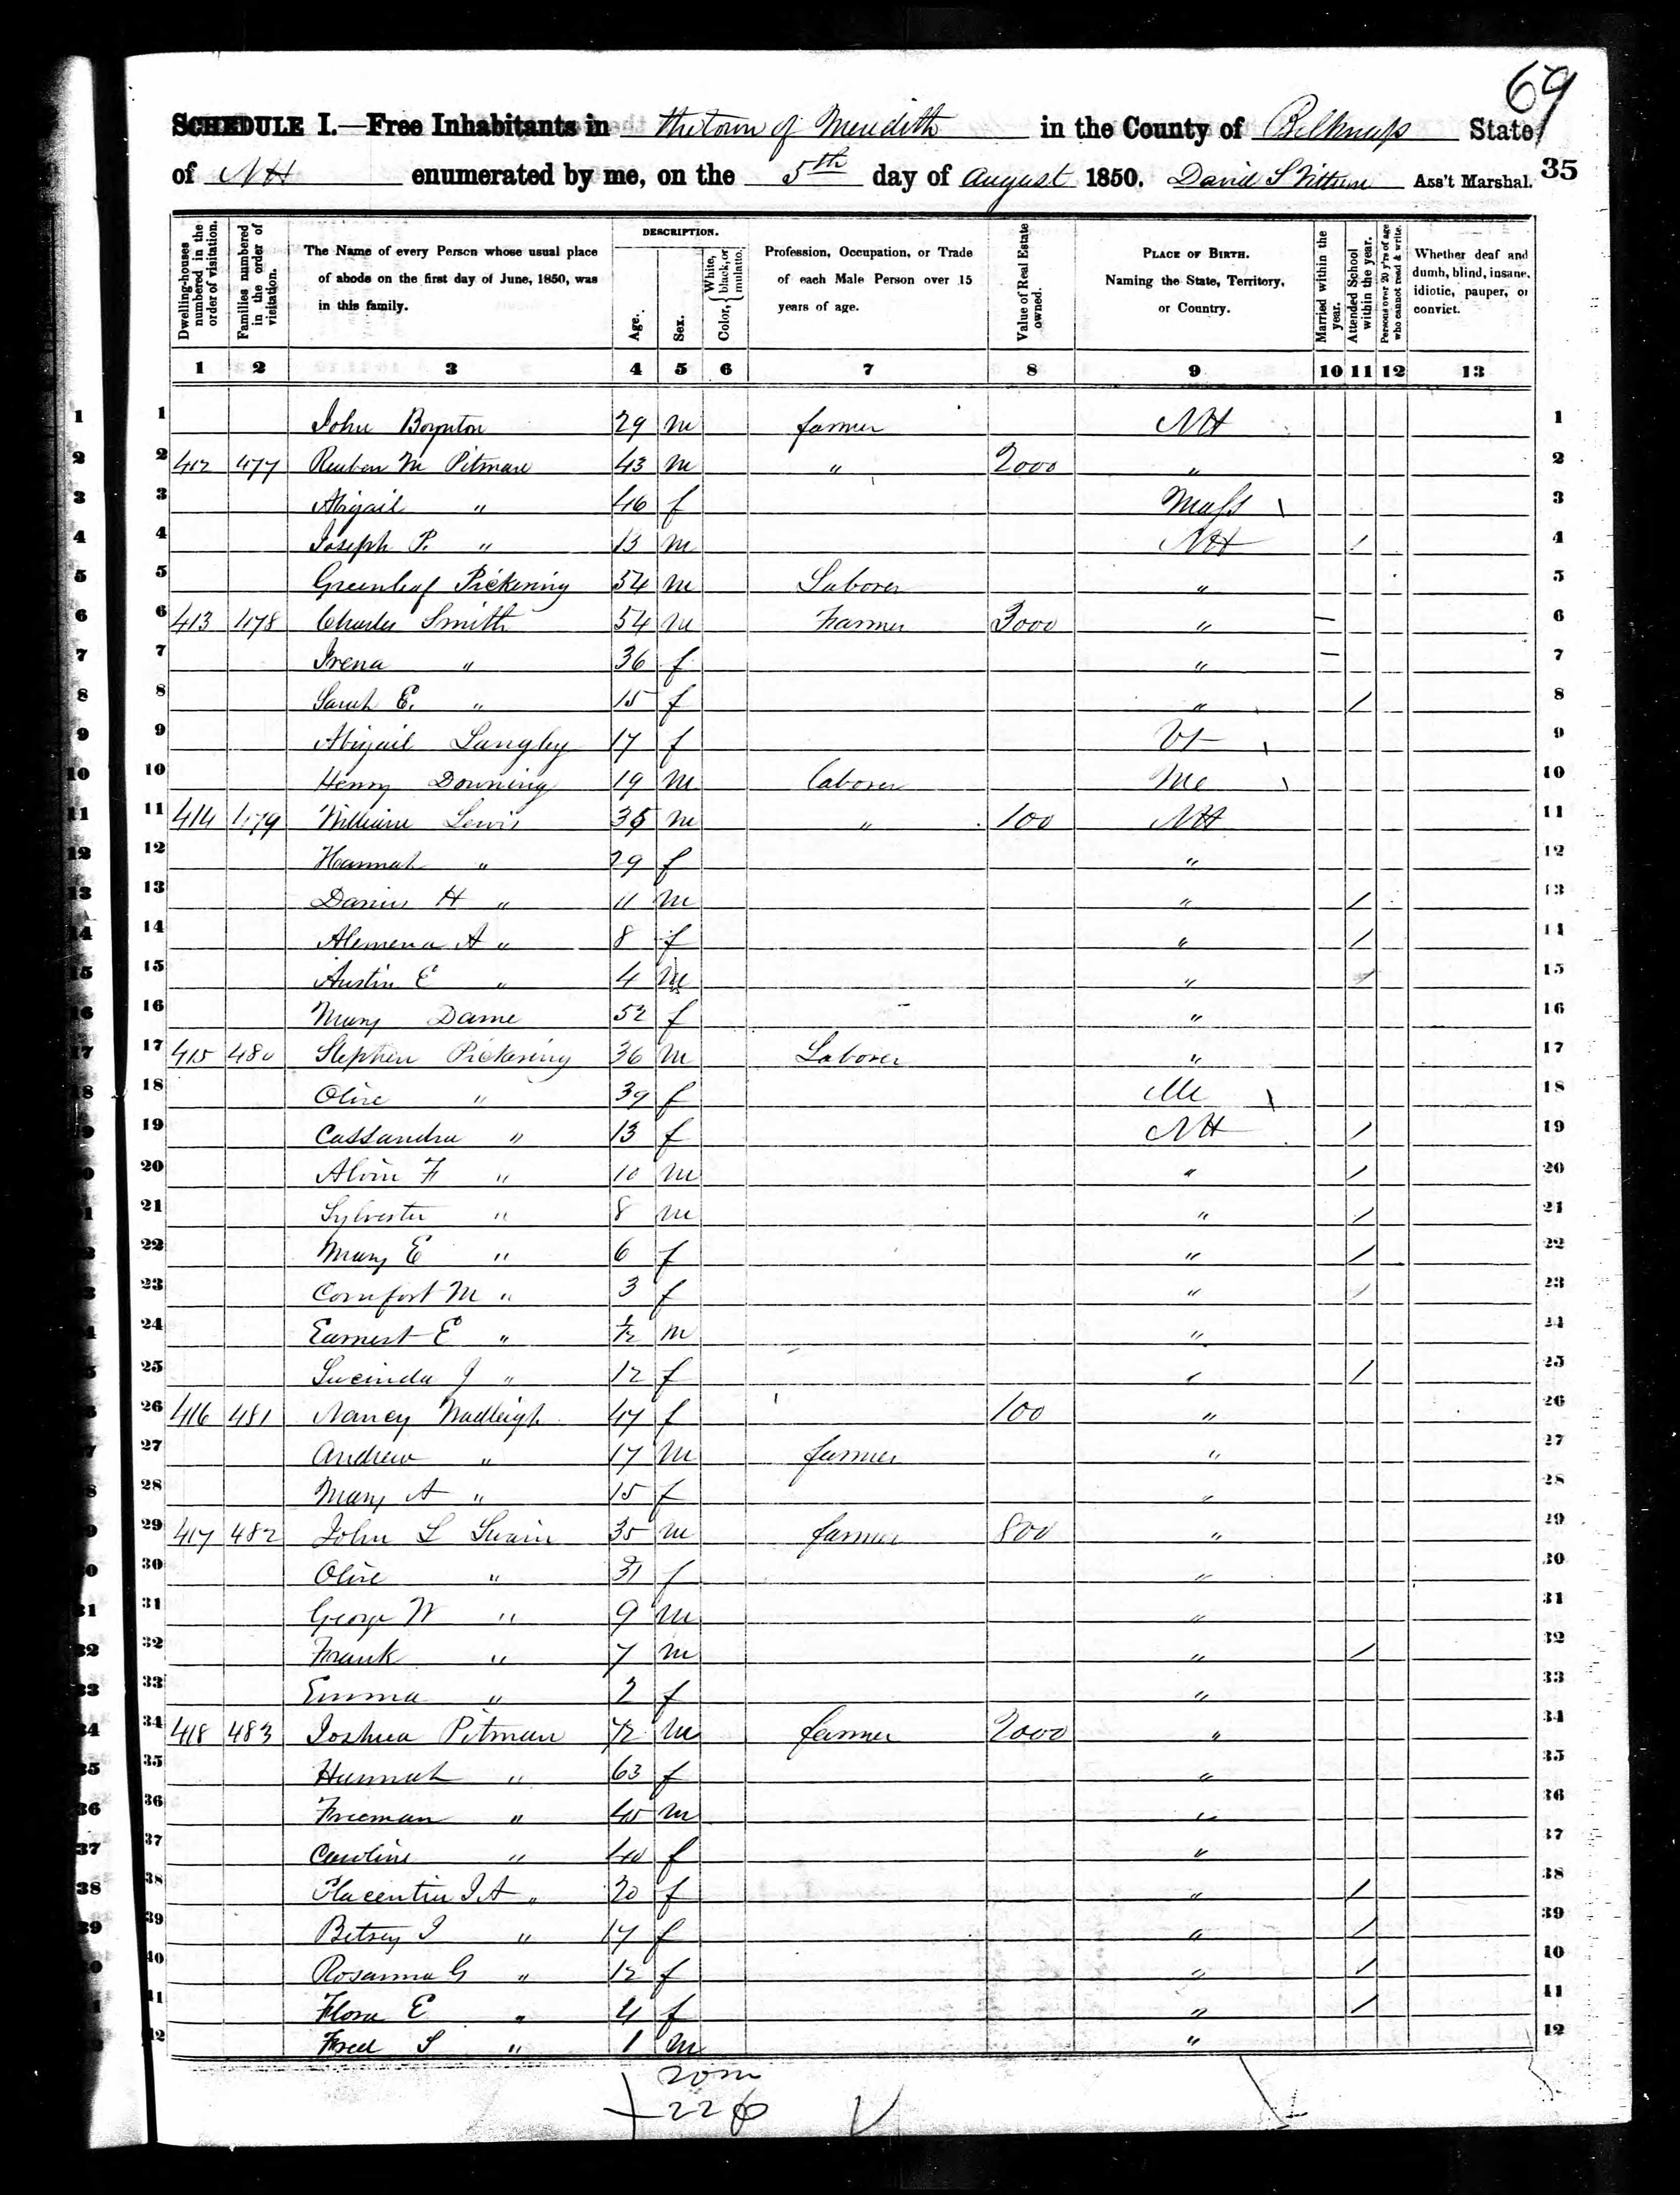 69
SCHEDULE I.—Free Inhabitants in the town of Meredith in the County of Belknap State
of NH enumerated by me, on the 5th day of August 1850. David S Vittum Ass't Marshal. 35
Dwelling-houses numbered in the order of visitation.
Families numbered in the order of visitation.
The Name of every Person whose usual place of abode on the first day of June, 1850, was in this family.
DESCRIPTION.
Age.
Sex.
Color, { White, black, or mulatto.
Profession, Occupation, or Trade of each Male Person over 15 years of age.
Value of Real Estate owned.
PLACE OF BIRTH. Naming the State, Territory, or Country.
Married within the year.
Attended School within the year.
Persons over 20 y'rs of age who cannot read & write.
Whether deaf and dumb, blind, insane, idiotic, pauper, or convict.
1 2 3 4 5 6 7 8 9 10 11 12 13
1 John Boynton 29 m farmer NH 1
2 412 477 Reuben M Pitman 43 m " 2000 " 2
3 Abigail " 46 f Mass 3
4 Joseph P. " 13 m NH / 4
5 Greenleaf Pickering 54 m Laborer " 5
6 413 478 Charles Smith 54 m Farmer 3000 " — 6
7 Irena " 36 f " — 7
8 Sarah E. " 15 f " / 8
9 Abigail Langley 17 f Vt 9
10 Henry Downing 19 m laborer Me 10
11 414 479 William Lewis 35 m " 100 NH 11
12 Hannah " 29 f " 12
13 Darius H " 11 m " / 13
14 Alemena A " 8 f " / 14
15 Austin E " 4 m " / 15
16 Mary Dame 52 f " 16
17 415 480 Stephen Pickering 36 m Laborer " 17
18 Olive " 39 f Me 18
19 Cassandra " 13 f NH / 19
20 Alvin F " 10 m " / 20
21 Sylvester " 8 m " / 21
22 Mary E " 6 f " / 22
23 Comfort M " 3 f " / 23
24 Earnest E " 1/12 m " 24
25 Lucinda J " 12 f " / 25
26 416 481 Nancy Wadleigh 47 f 100 " 26
27 Andrew " 17 m farmer " 27
28 Mary A " 15 f " 28
29 417 482 John L Swain 35 m farmer 800 " 29
30 Olive " 31 f " 30
31 George W " 9 m " 31
32 Frank " 7 m " / 32
33 Emma " 2 f " 33
34 418 483 Joshua Pitman 72 m farmer 2000 " 34
35 Hannah " 63 f " 35
36 Freeman " 45 m " 36
37 Caroline " 40 f " 37
38 Placentia J.A " 20 f " / 38
39 Betsey J " 17 f " / 39
40 Rosanna G " 12 f " / 40
41 Flora E " 4 f " / 41
42 Fred S " 1 m " 42
20 m
22 f